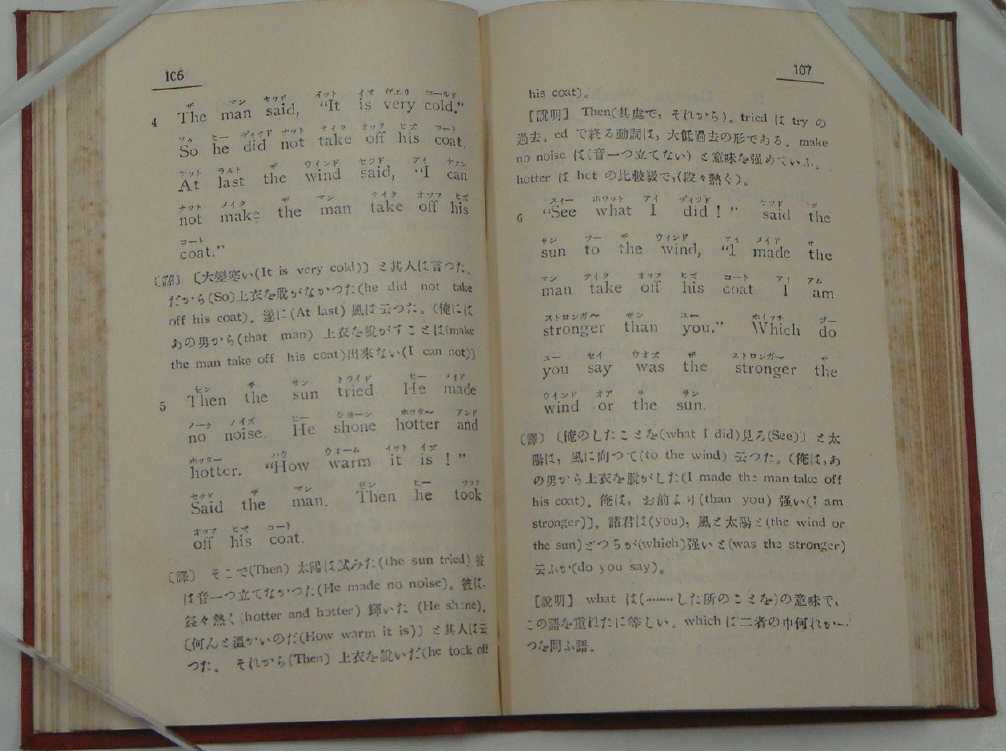 106
ザ マン セッド イット イズ ヴェリ コールド
4 The man said, “It is very cold.”
So he did not take off his coat.
At last the wind said, “I can
not make the man take off his
コート
coat.”
〔譯〕〔大變寒い(It is very cold)〕と其人は言つた。
だから(So)上衣を脫がなかつた(he did not take
off his coat)。遂に(At last)風は云つた。(俺には
あの男から(that man) 上衣を脫がすことは(make
the man take off his coat)出來ない(I can not)〕
ゼン ザ サン トライド ヒー メイド
5 Then the sun tried. He made
no noise. He shone hotter and
hotter. “How warm it is!”
Said the man. Then he took
オッフ ヒズ コート
off his coat.
〔譯〕そこで(Then)太陽は試みた(the sun tried)彼
は音一つ立てなかつた(He made no noise)。彼は、
益々熱く(hotter and hotter) 輝いた (He shone)。
〔何んと溫かいのだ(How warm it is)〕と其人は云
つた。 それから(Then) 上衣を脫いだ(he took off
107
his coat)。
〔說明〕 Then(其處で、それから)。tried は try の
過去。ed で終る動詞は、大低過去の形である。make
no noise は(音一つ立てない) と意味を强めていふ。
hotter は hot の比較級で、(段々熱く)。
スィー ホワット アイ ディッド セッド ザ
6 “See what I did!” said the
サン ツー ザ ウィンド アイ メイド ザ
sun to the wind, “I made the
マン テイク オッフ ヒズ コート アイ アム
man take off his coat I am
ストロンガー ザン ユー ホイッチ ヅー
stronger than you.” Which do
ユー セイ ウオズ ザ ストロンガー ザ
you say was the stronger the
ウインド オア ザ サン
wind or the sun.
〔譯〕〔俺のしたことを(what I did)見ろ(See)〕と太
陽は、風に向つて(to the wind) 云つた。(俺は、あ
の男から上衣を脫がした(I made the man take off
his coat)。俺は、お前より(than you) 强い(I am
stronger)〕。諸君は(you)、風と太陽と(the wind or
the sun)どつちが(which)强いと(was the stronger)
云ふか(do you say)。
〔說明〕 what は(………した所のことを)の意味で、
この語を重れたに等しい。which は二者の中何れか一
つを問ふ語。